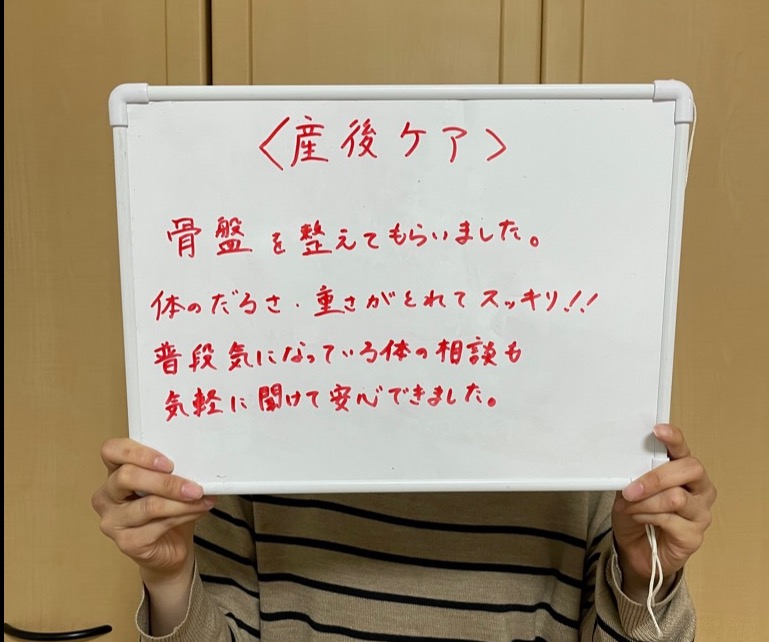 〈産後ケア〉
骨盤を整えてもらいました。
体のだるさ・重さがとれてスッキリ!!
普段気になっている体の相談も
気軽に聞けて安心できました。